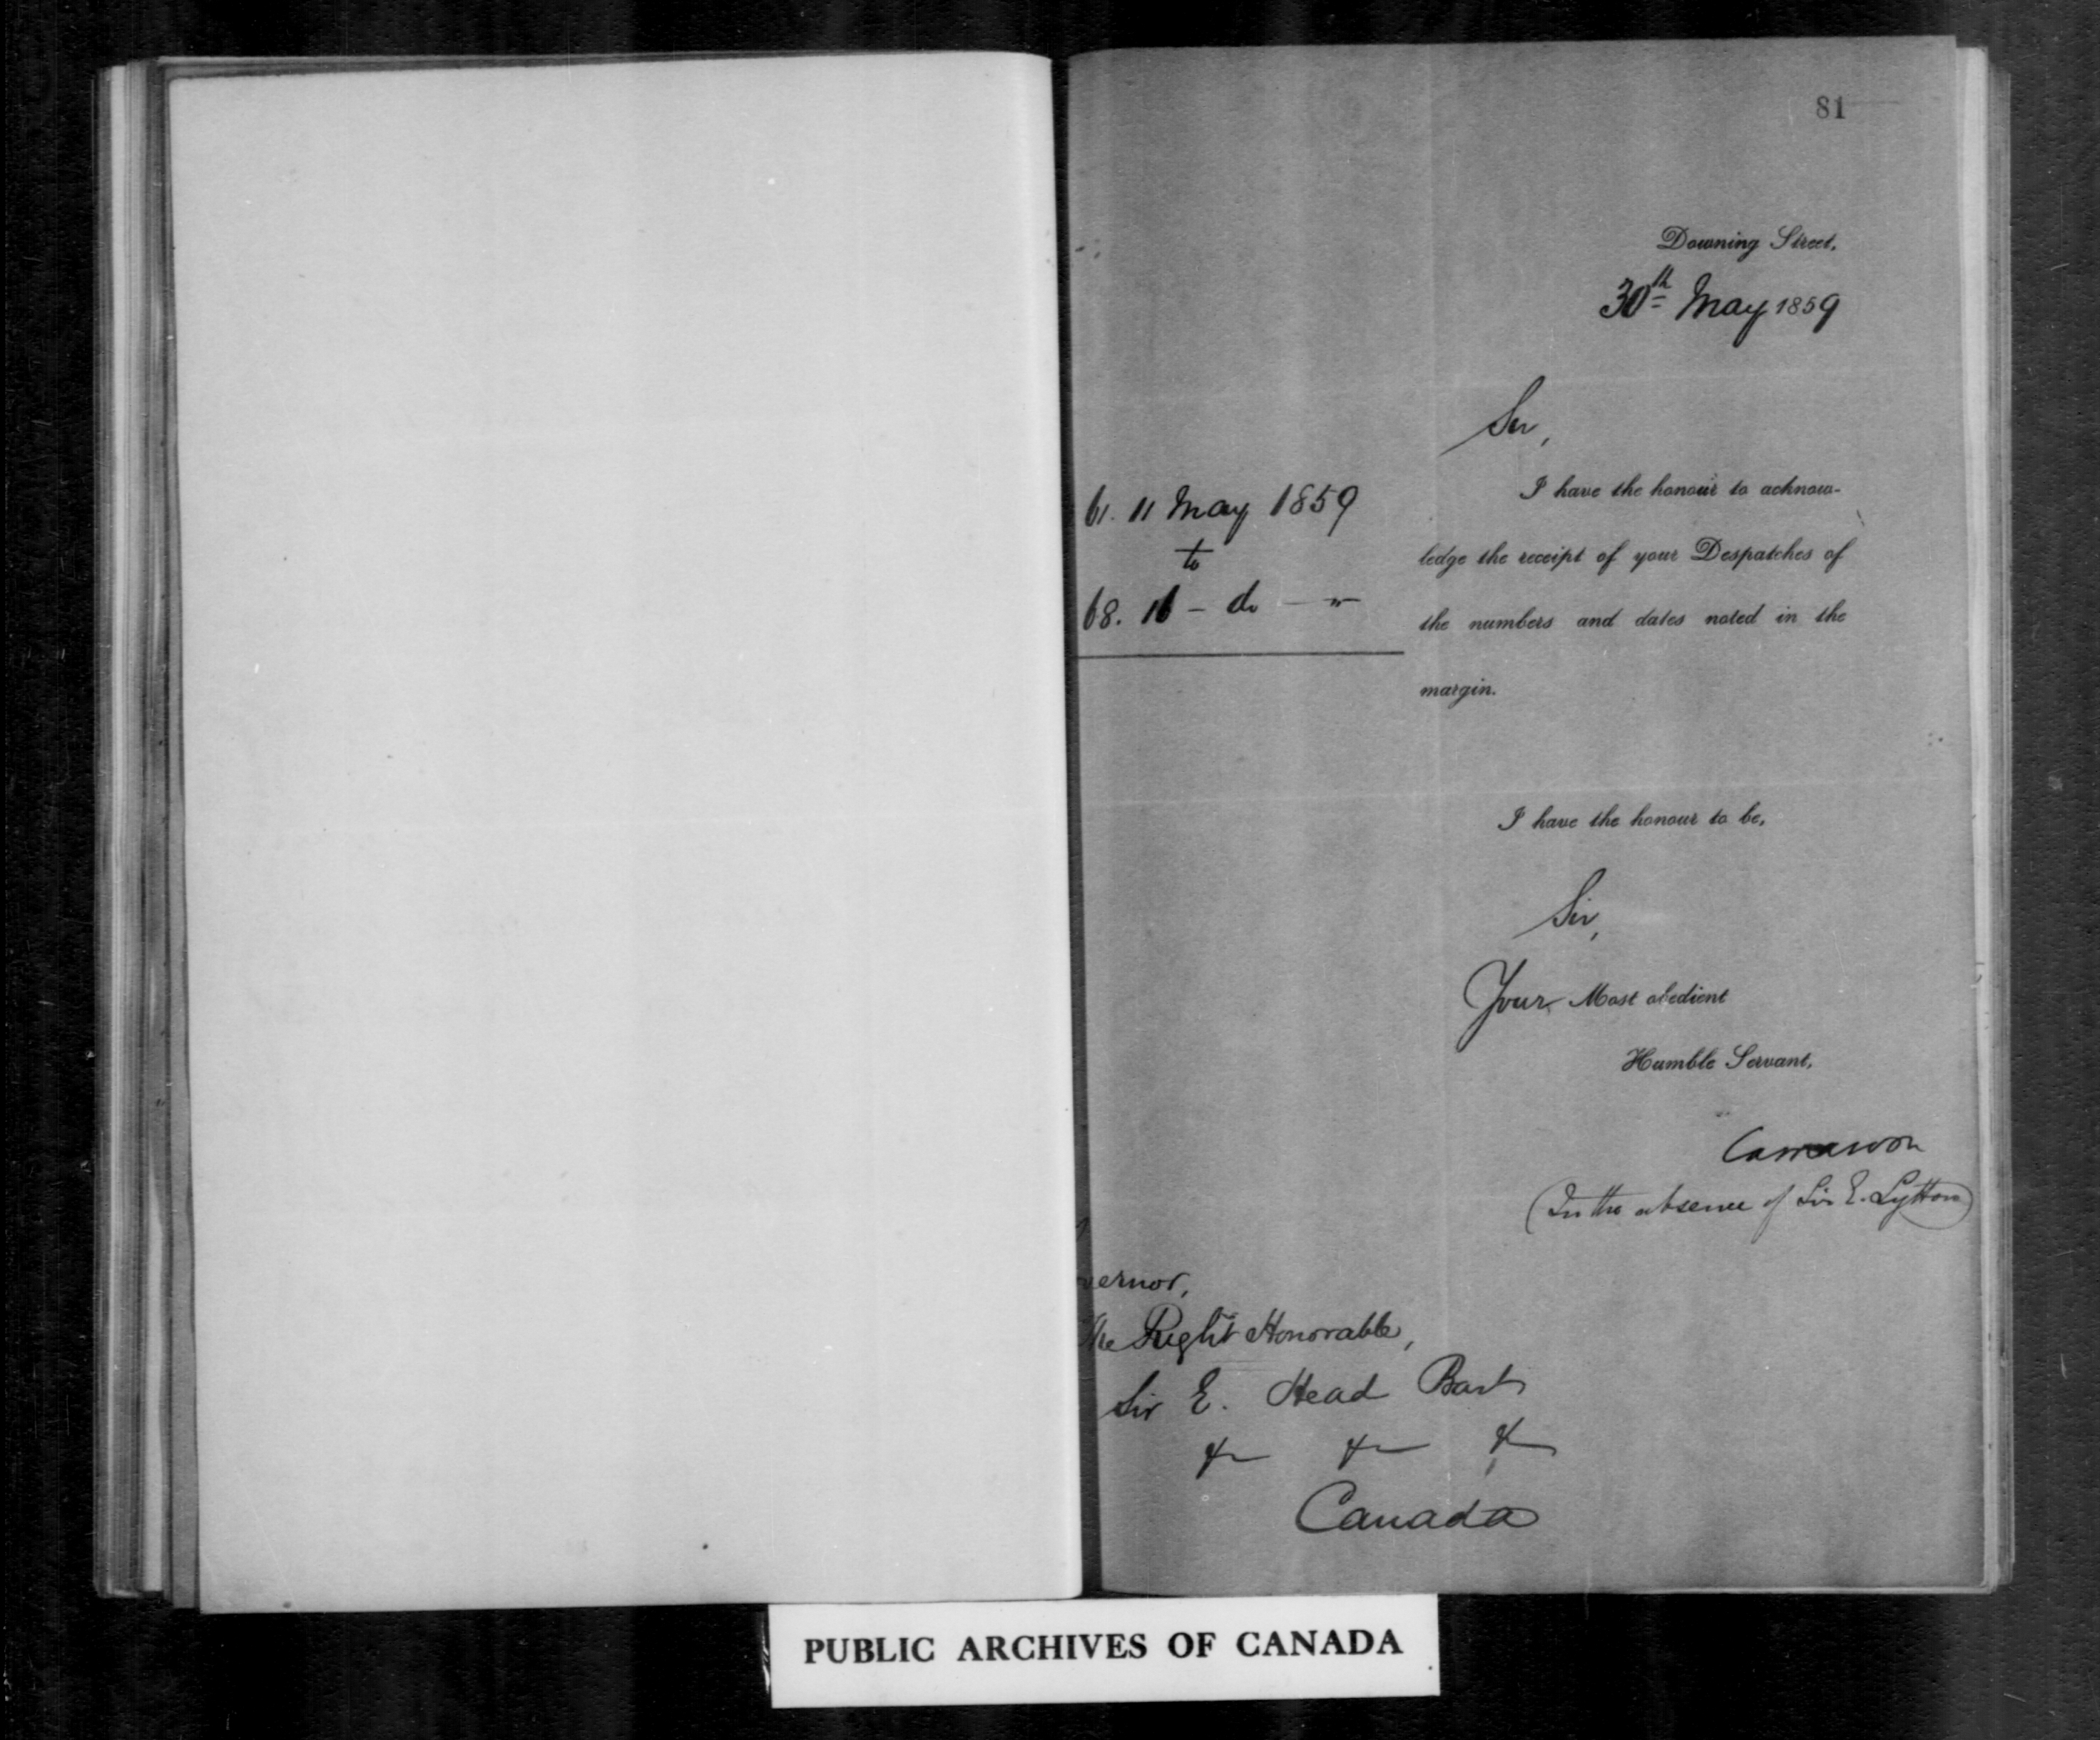 81
Downing Street,
30th May 1859
Sir,
61. 11 May 1859
to
68. 16 - do - "
I have the honour to acknow-
ledge the receipt of your Despatches of
the numbers and dates noted in the
margin.
I have the honour to be,
Sir,
Your Most obedient
Humble Servant,
Carnarvon
(In the absence of Sir E. Lytton)
vernor,
The Right Honorable,
Sir E. Head Bart
&c &c &c
Canada
PUBLIC ARCHIVES OF CANADA